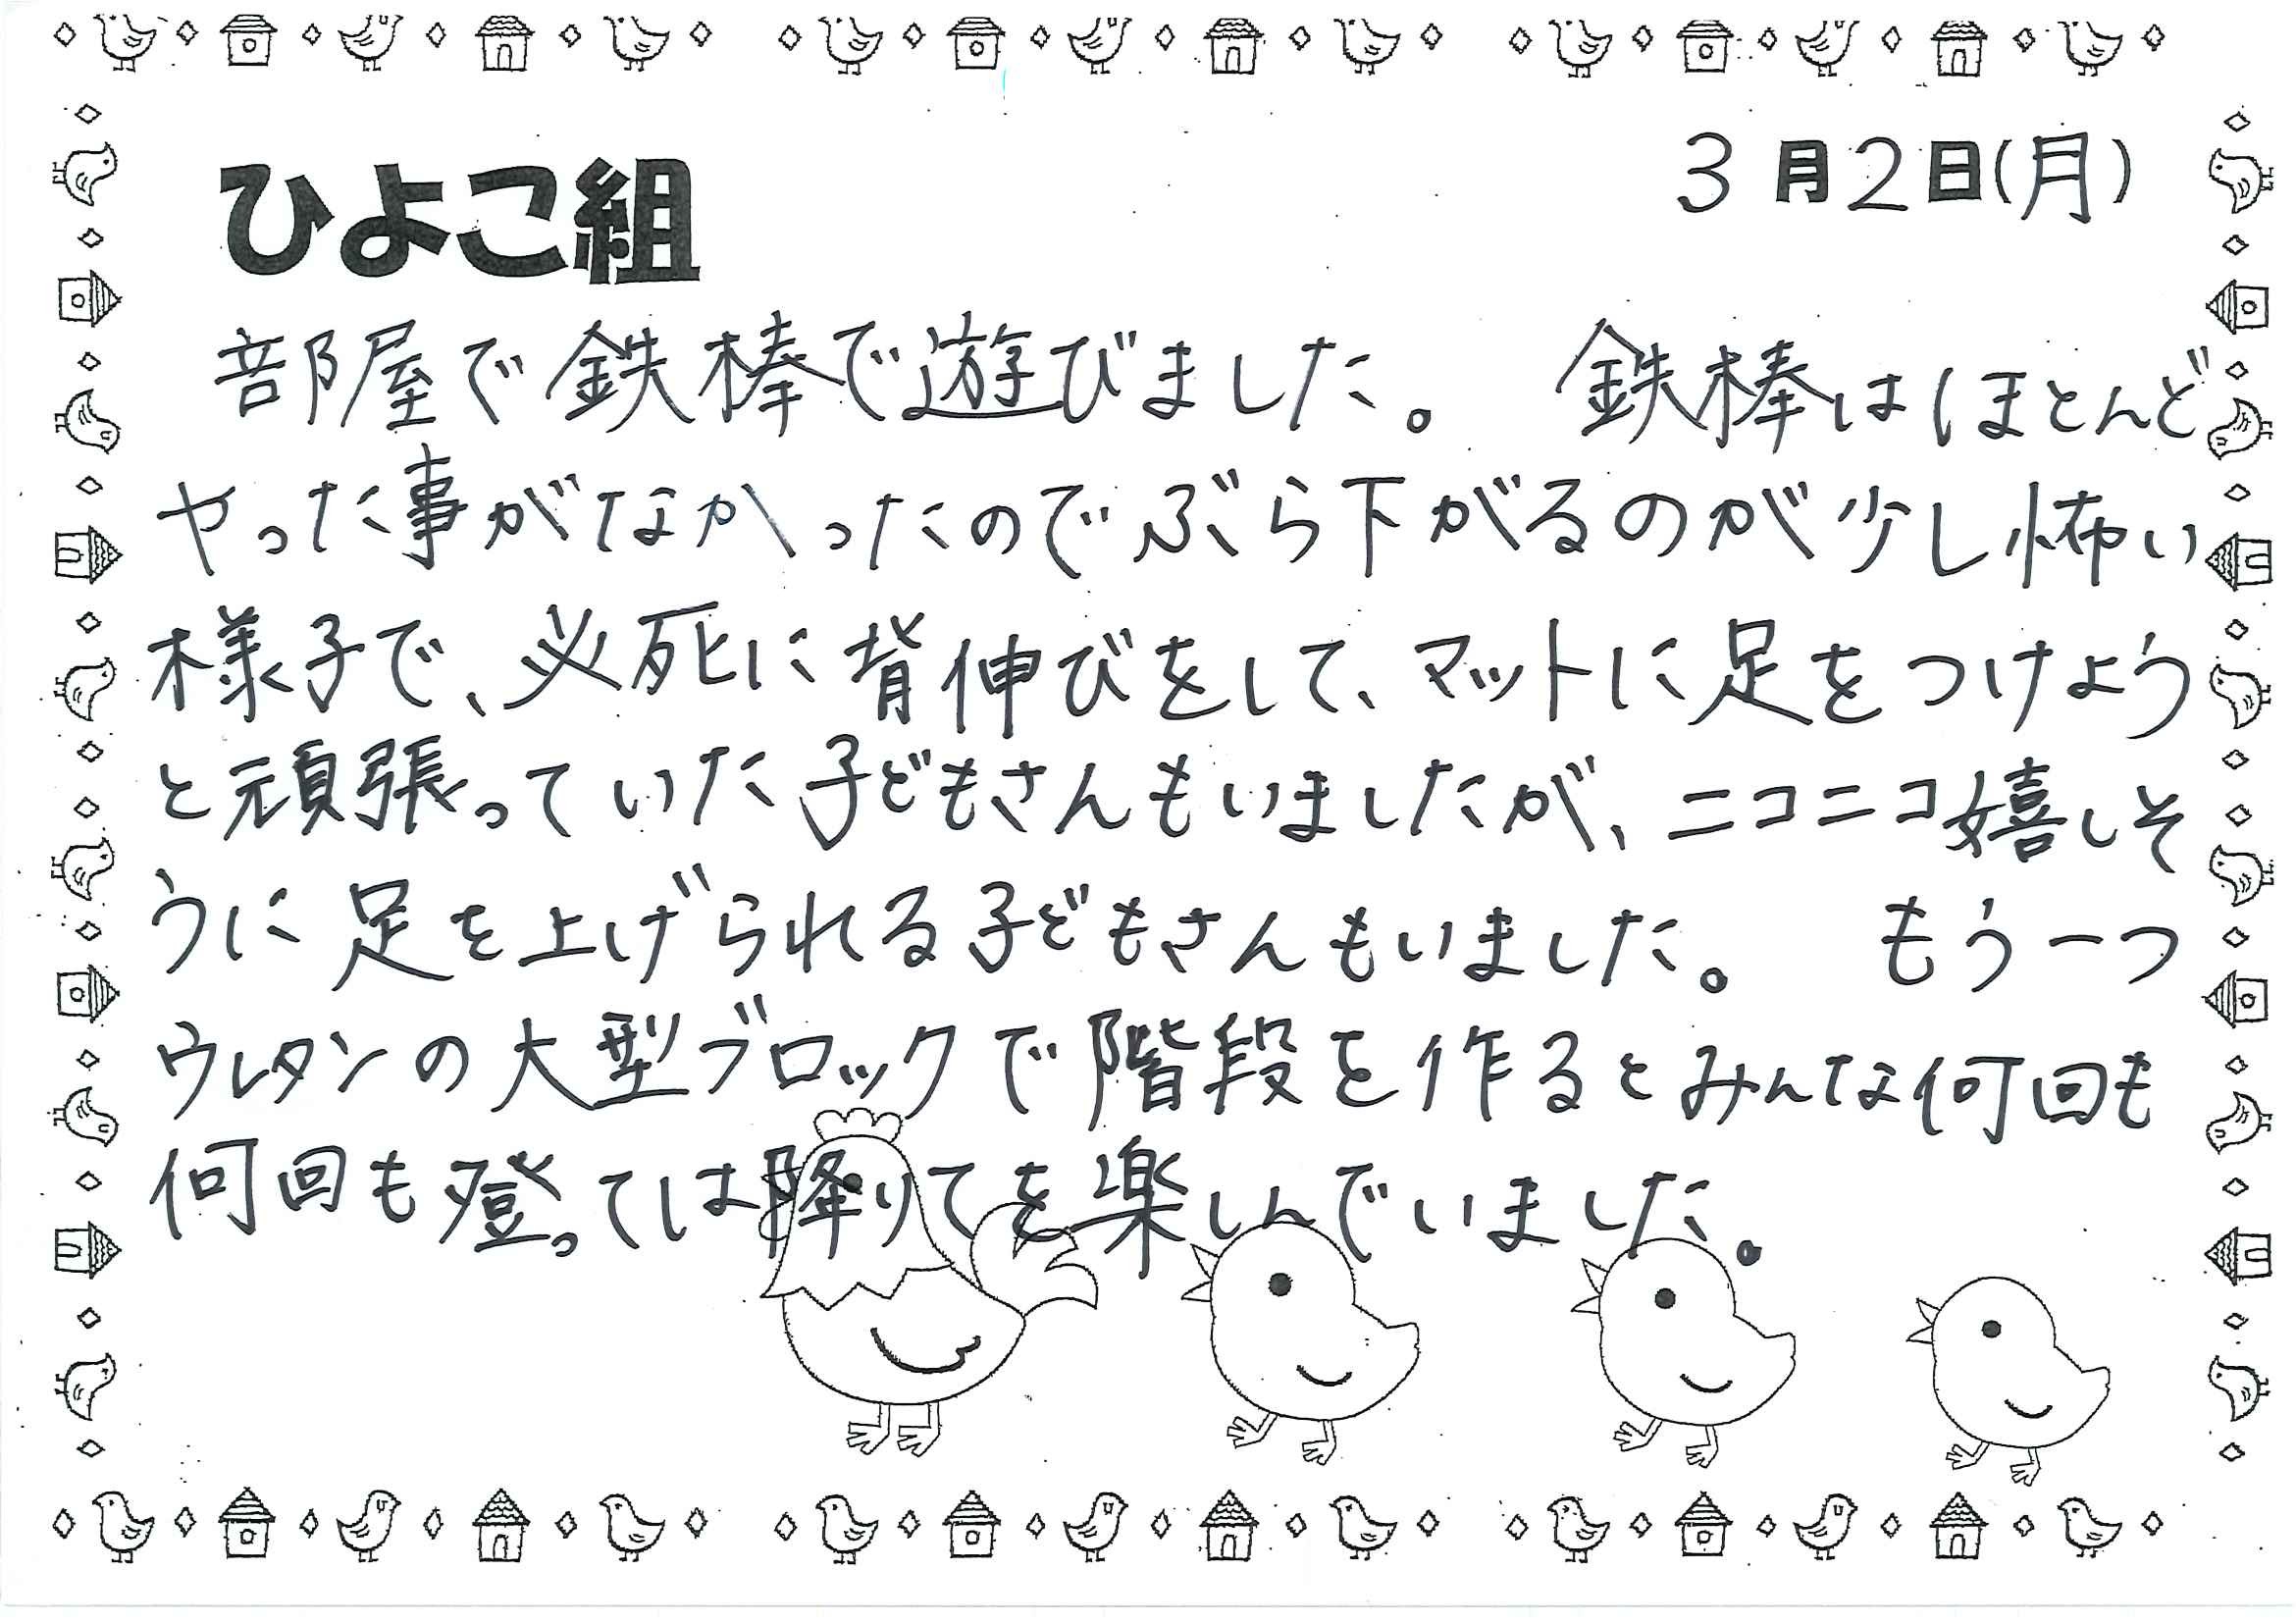 ひよこ組
3月2日(月)
部屋で鉄棒で遊びました。 鉄棒はほとんど
やった事がなかったのでぶら下がるのが少し怖い
様子で、必死に背伸びをして、マットに足をつけよう
と頑張っていた子どもさんもいましたが、ニコニコ嬉しそ
うに足を上げられる子どもさんもいました。 もう一つ
ウレタンの大型ブロックで階段を作るとみんな何回も
何回も登っては降りてを楽しんでいました。